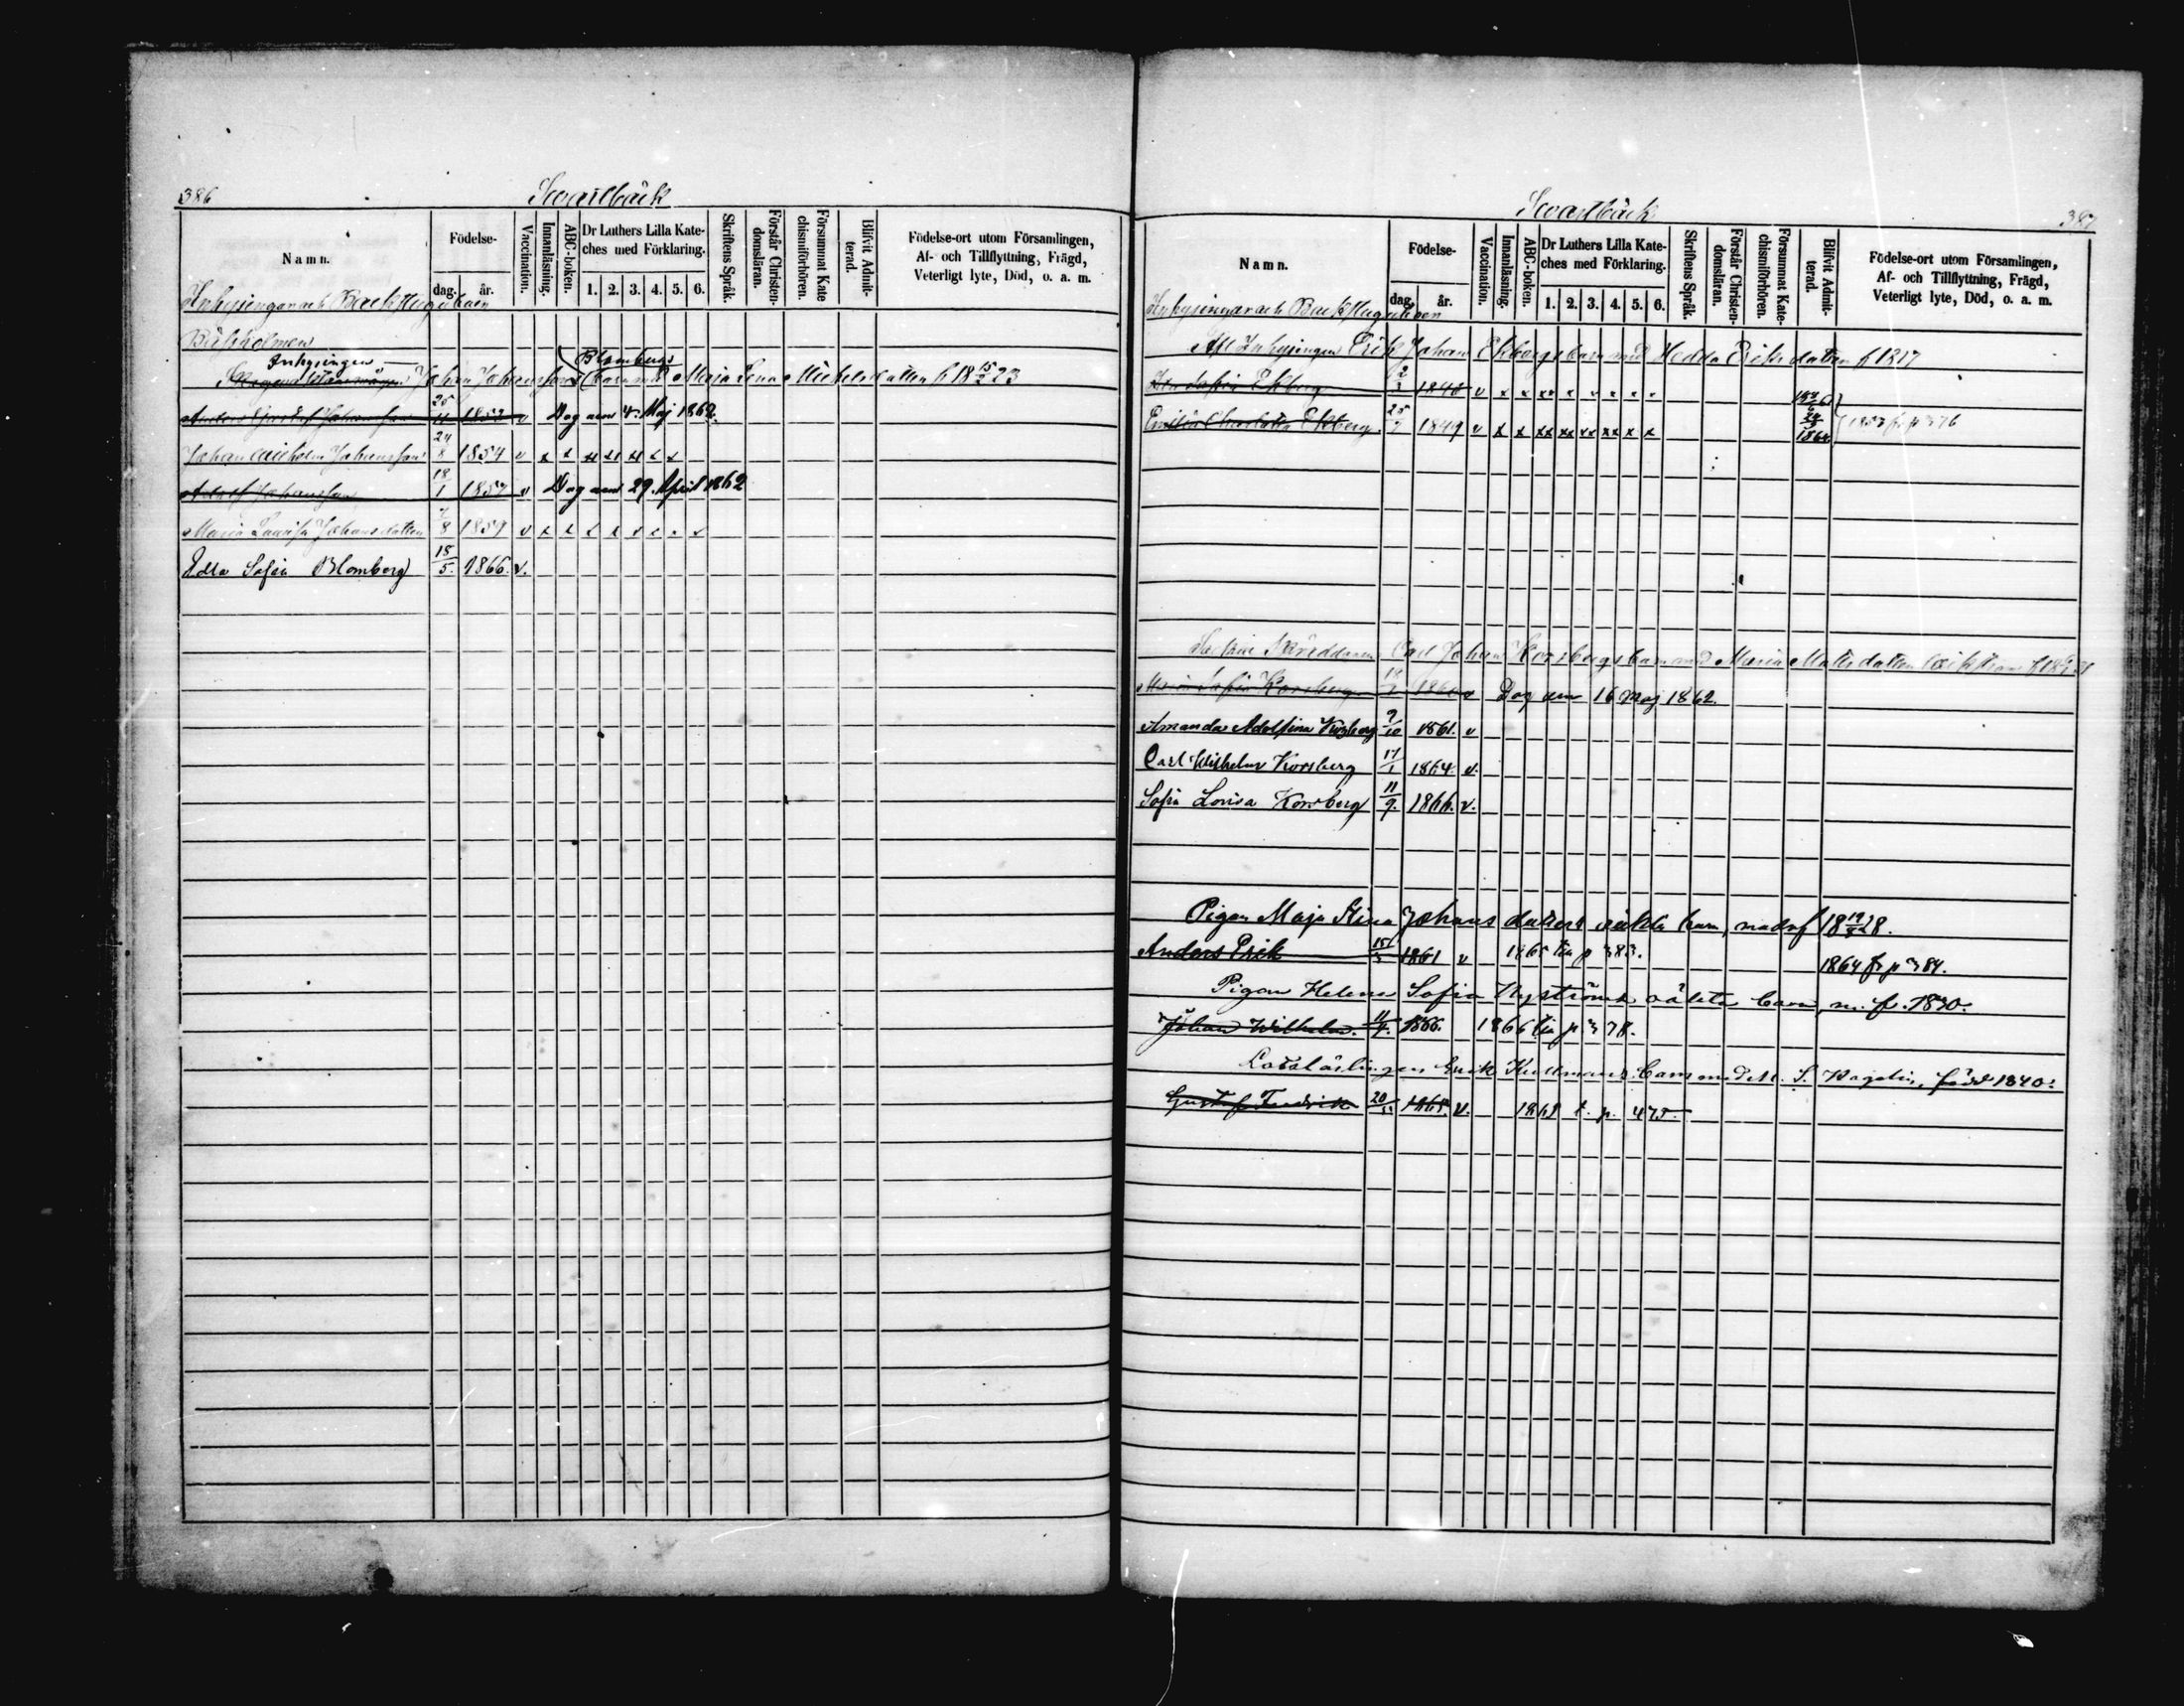 386 Svartbäck
Namn. Födelse- dag. år. Vaccination. Innanläsning. ABC-boken. Dr Luthers Lilla Kate-ches med Förklaring. 1. 2. 3. 4. 5. 6. Skriftens Språk. Förstår Christen-domsläran. Försummat Kate chismiförhören. Blifvit Admit-terad. Födelse-ort utom Församlingen, Af- och Tillflyttning, Frägd, Veterligt lyte, Död, o. a. m.
Inhysingar och Backstugukarn
Inhysingen Blombergs
Johan Johanssons barn med Maja Lena Michelsdotter f 18 15/2 23
Anders Gustaf Johansson 25/11 1852 v Dog den 4 Maj 1862.
Johan Wilhelm Johansson 24/8 1854 v x x xx xx xx x x
Adolf Johansson 18/1 1857 v Dog den 29 April 1862
Maria Lovisa Johansdotter 7/8 1859 v x x x x x x x x
Edla Sofia Blomberg 18/5. 1866. v.
Svartbäck 387
Namn. Födelse- dag. år. Vaccination. Innanläsning. ABC-boken. Dr Luthers Lilla Kate-ches med Förklaring. 1. 2. 3. 4. 5. 6. Skriftens Språk. Förstår Christen-domsläran. Försummat Kate-chismiförhören. Blifvit Admit-terad. Födelse-ort utom Församlingen, Af- och Tillflyttning, Frägd, Veterligt lyte, Död, o. a. m.
Inhysingar och Backstugukarn
Afl Inhysingen Erik Johan Ekbergs barn med Hedda Eriksdotter f 1817
Sofia Ekberg 1846 v x x xx x x x x x
Emilia Charlotta Ekberg 25/7 1849 v x x xx xx xx xx x x 1864 1853 fr p 376
Carl Johan Korsbergs barn med Maria Mattsdotter
Maria Sofia Korsberg 1860 v Dog den 16 Maj 1862.
Amanda Adolfina Korsberg 9/10 1861. v
Carl Wilhelm Korsberg 17/1 1864. v.
Sofia Lovisa Korsberg 11/9. 1866. v.
Pigan Maja Stina Johansdotters oäkta barn, modr f 18 19/5 28.
Anders Erik 15/3 1861 v 1865 till p 383. 1864 fr p 384.
Pigan Helena Sofia Nyströms oäkta barn, m. f. 1830.
Johan Wilhelm. 11/4. 1866. 1866 till p 378.
Lotslärlingen Erik Kullmans barn med S. Wagelin, född 1840.
Gustaf Fredrik 20/11 1868. v. 1868 t. p. 475.